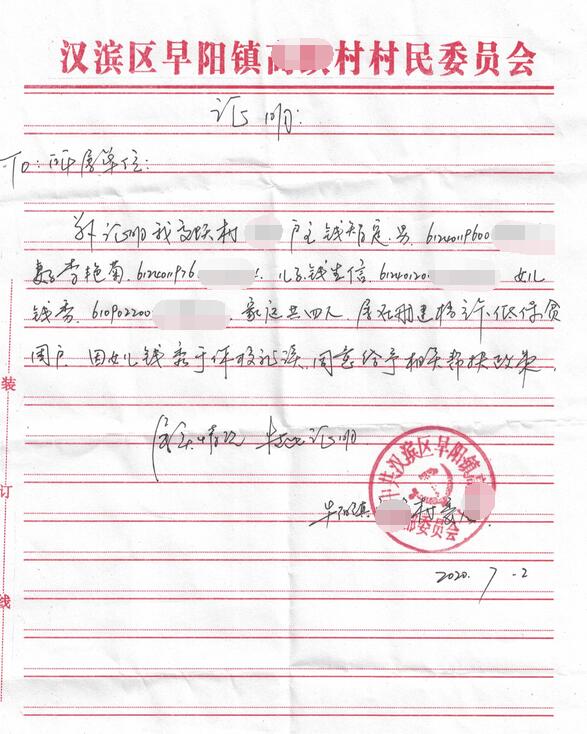 汉滨区早阳镇 村村民委员会
证明:
To:所属单位:
兹证明我 村 户主钱 定 男. 61240119600
妻子李艳菊. 612401196 儿子钱生信. 61240120 女儿
钱香. 610902200 . 家庭共四人. 属在册建档 低保贫
困户. 因女儿钱香 就读, 同意给予相关帮扶政策.
情况 特此证明
早阳镇 村委
中共汉滨区早阳镇
部委员会
2020. 7 -2
装
订
线